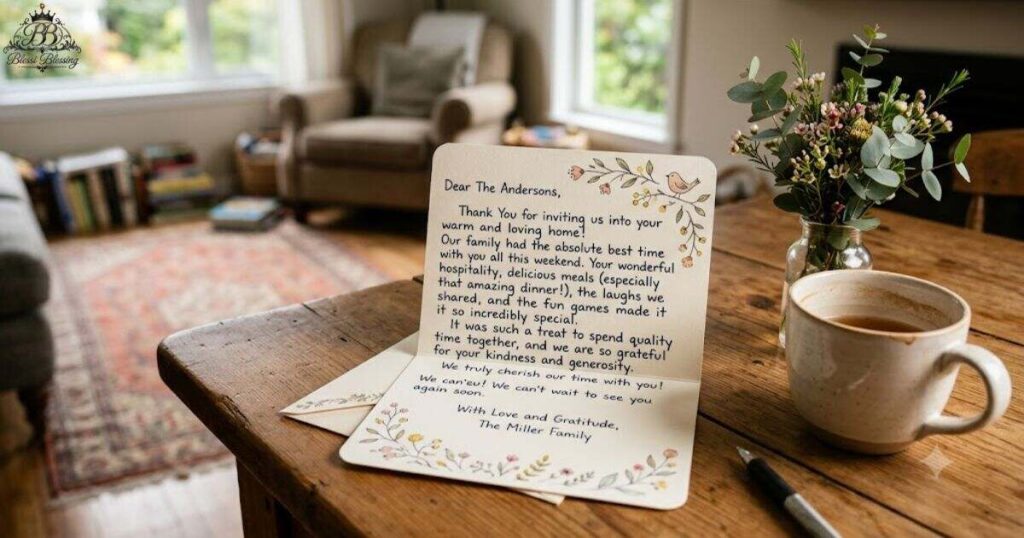 BB
Blessi Blessing
Dear The Andersons,
Thank You for inviting us into your
warm and loving home!
Our family had the absolute best time
with you all this weekend. Your wonderful
hospitality, delicious meals (especially
that amazing dinner!), the laughs we
shared, and the fun games made it
it so incredibly special.
It was such a treat to spend quality
time together, and we are so grateful
for your kindness and generosity.
We truly cherish our time with you!
We can'eu! We can't wait to see you
again soon.
With Love and Gratitude,
The Miller Family